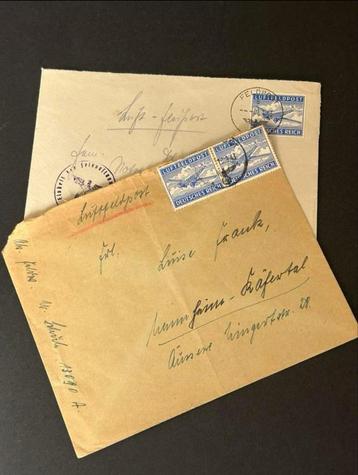 FELDPOST
LUFTFELDPOST
DEUTSCHES REICH
Luft-Feldpost
LUFTFELDPOST LUFTFELDPOST
DEUTSCHES REICH DEUTSCHES REICH
Luftfeldpost
Frl. Luise Frank,
Mannheim-Käfertal
Äussere Wingertstr. 29
13090 A.